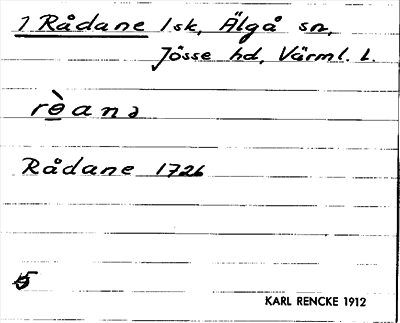 1 Rådane 1sk, Älgå sn,
Jösse hd, Värml. l.
rɵ̀anə
Rådane 1726
5
KARL RENCKE 1912